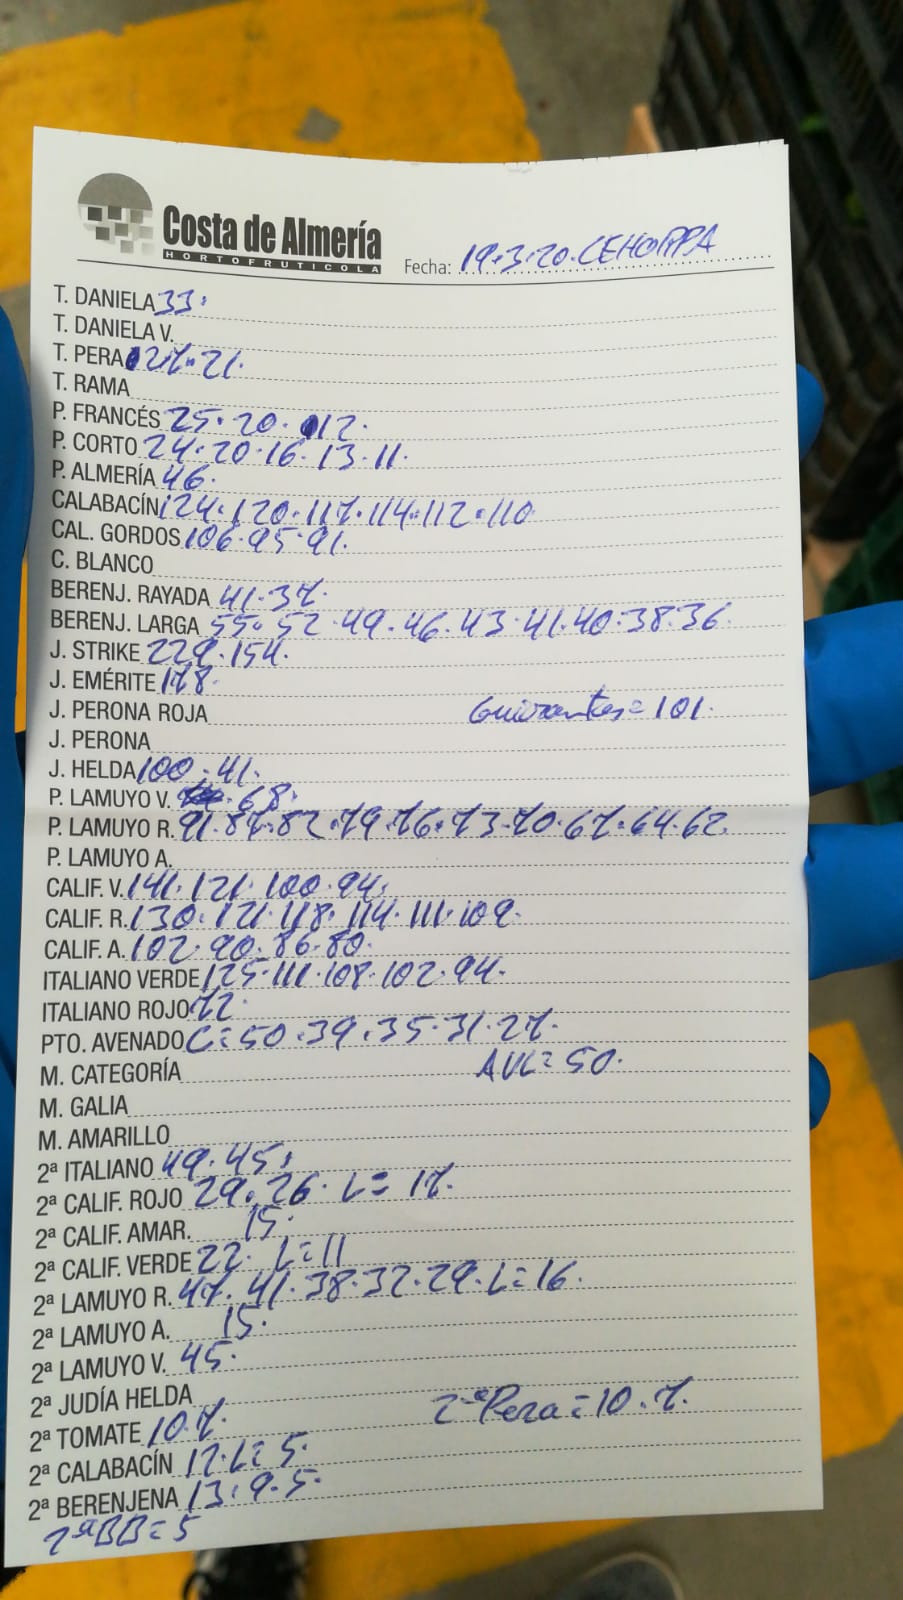 Costa de Almería
HORTOFRUTICOLA
Fecha: 19.3.20. CEHORPA
T. DANIELA 33.
T. DANIELA V.
T. PERA 27.21.
T. RAMA
P. FRANCÉS 25.20.12.
P. CORTO 24.20.16.13.11.
P. ALMERÍA 46.
CALABACÍN 124.120.117.114.112.110
CAL. GORDOS 106.95.91.
C. BLANCO
BERENJ. RAYADA 41.37.
BERENJ. LARGA 55.52.49.46.43.41.40.38.36.
J. STRIKE 229.154.
J. EMÉRITE 178.
J. PERONA ROJA Guisantes=101.
J. PERONA
J. HELDA 100.41.
P. LAMUYO V. 68.
P. LAMUYO R. 91.87.82.79.76.73.70.67.64.62.
P. LAMUYO A.
CALIF. V. 141.121.100.94.
CALIF. R. 130.121.118.114.111.109.
CALIF. A. 102.90.86.80.
ITALIANO VERDE 125.111.108.102.94.
ITALIANO ROJO 72.
PTO. AVENADO C=50.39.35.31.27.
M. CATEGORÍA AVL=50.
M. GALIA
M. AMARILLO
2ª ITALIANO 49.45.
2ª CALIF. ROJO 29.26. L=17.
2ª CALIF. AMAR. 15.
2ª CALIF. VERDE 22. L=11
2ª LAMUYO R. 47.41.38.32.29. L=16.
2ª LAMUYO A. 15.
2ª LAMUYO V. 45.
2ª JUDÍA HELDA
2ª TOMATE 10.7. 2ªPera=10.7.
2ª CALABACÍN 12. L=5.
2ª BERENJENA 13.9.5.
2ªBB=5